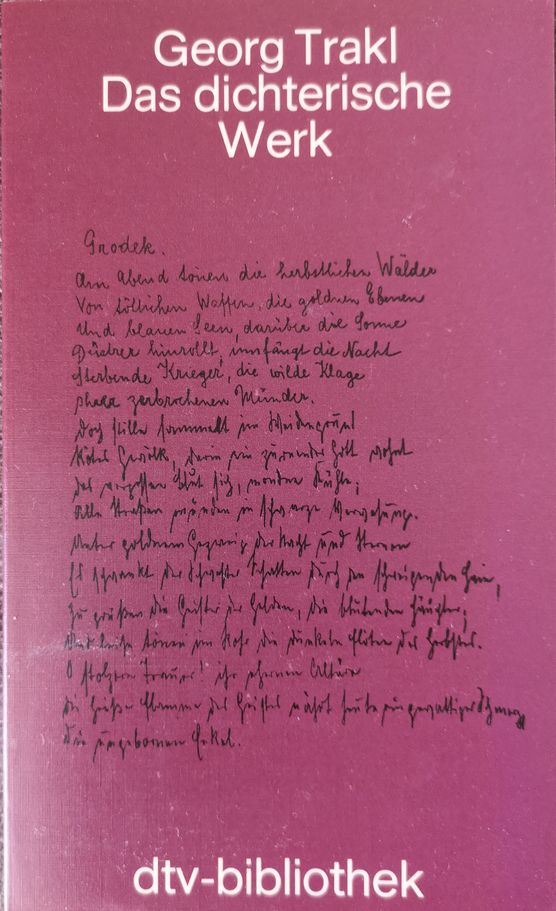 Georg Trakl
Das dichterische
Werk
Grodek.
Am Abend tönen die herbstlichen Wälder
Von tötlichen Waffen, die goldnen Ebenen
Und blauen Seen, darüber die Sonne
Düstrer hinrollt; umfängt die Nacht
Sterbende Krieger, die wilde Klage
Ihrer zerbrochenen Münder.
Doch stille sammelt im Weidengrund
Rotes Gewölk, darin ein zürnender Gott wohnt
Das vergossne Blut sich, mondne Kühle;
Alle Straßen münden in schwarze Verwesung.
Unter goldnem Gezweig der Nacht und Sternen
Es schwankt der Schwester Schatten durch den schweigenden Hain,
Zu grüßen die Geister der Helden, die blutenden Häupter;
Und leise tönen im Rohr die dunkeln Flöten des Herbstes.
O stolzere Trauer! ihr ehernen Altäre
Die heiße Flamme des Geistes nährt heute ein gewaltiger Schmerz
Die ungebornen Enkel.
dtv-bibliothek